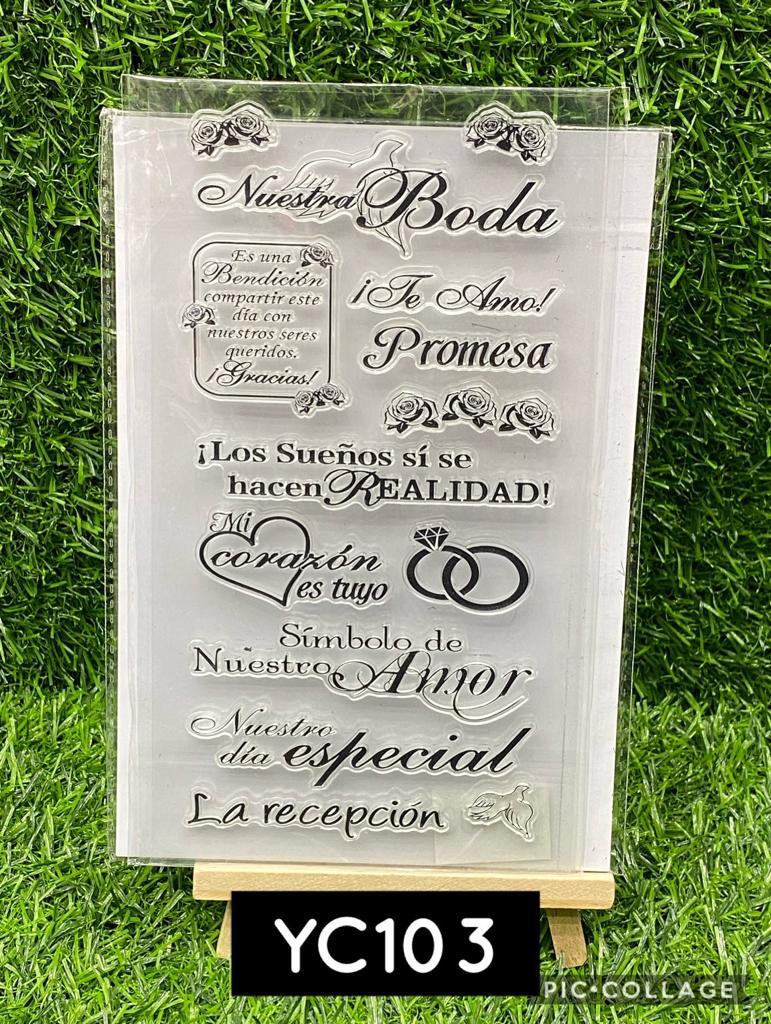 Nuestra Boda
Es una
Bendición
compartir este
día con
nuestros seres
queridos.
¡Gracias!
¡Te Amo!
Promesa
¡Los Sueños sí se
hacen REALIDAD!
Mi
corazón
es tuyo
Símbolo de
Nuestro Amor
Nuestro
día especial
La recepción
YC103
PIC•COLLAGE